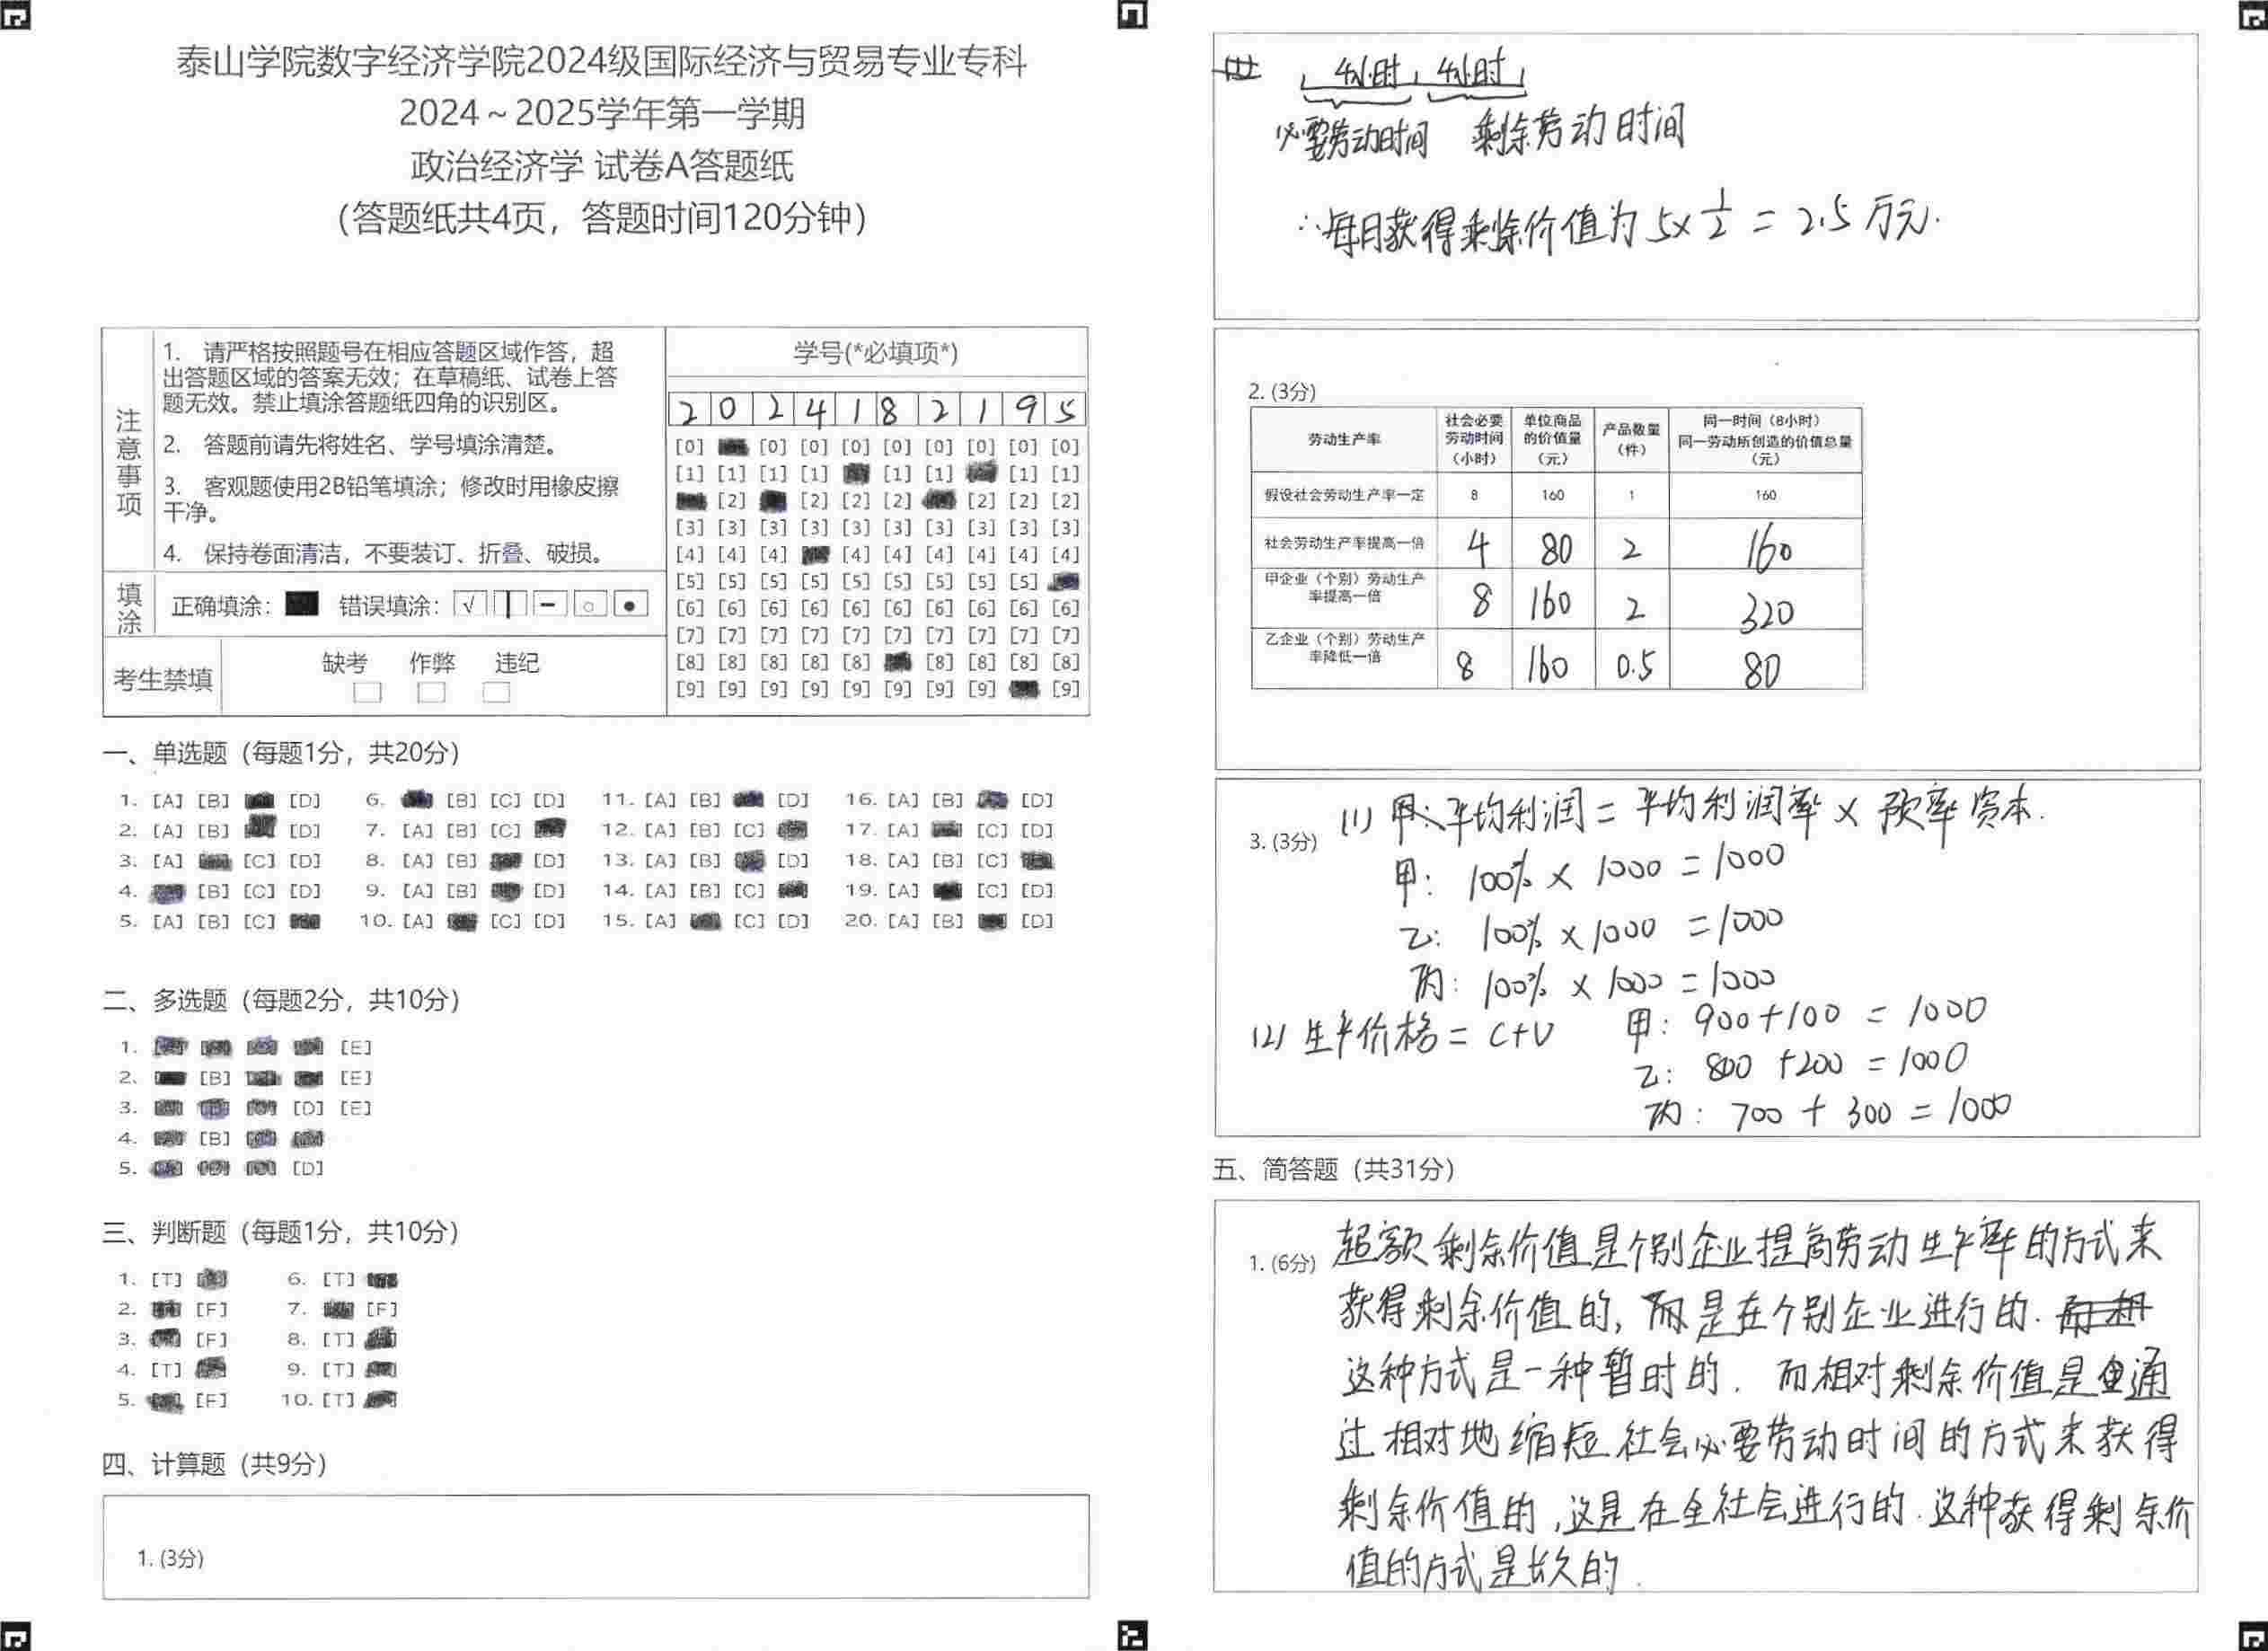 泰山学院数字经济学院2024级国际经济与贸易专业专科
2024～2025学年第一学期
政治经济学 试卷A答题纸
（答题纸共4页，答题时间120分钟）
注意事项
1. 请严格按照题号在相应答题区域作答，超
出答题区域的答案无效；在草稿纸、试卷上答
题无效。禁止填涂答题纸四角的识别区。
2. 答题前请先将姓名、学号填涂清楚。
3. 客观题使用2B铅笔填涂；修改时用橡皮擦
干净。
4. 保持卷面清洁，不要装订、折叠、破损。
填涂
正确填涂： 错误填涂：
考生禁填
缺考 作弊 违纪
学号(*必填项*)
2 0 2 4 1 8 2 1 9 5
[0] [0] [0] [0] [0] [0] [0] [0] [0]
[1] [1] [1] [1] [1] [1] [1] [1]
[2] [2] [2] [2] [2] [2] [2]
[3] [3] [3] [3] [3] [3] [3] [3] [3] [3]
[4] [4] [4] [4] [4] [4] [4] [4] [4]
[5] [5] [5] [5] [5] [5] [5] [5] [5]
[6] [6] [6] [6] [6] [6] [6] [6] [6] [6]
[7] [7] [7] [7] [7] [7] [7] [7] [7] [7]
[8] [8] [8] [8] [8] [8] [8] [8] [8]
[9] [9] [9] [9] [9] [9] [9] [9] [9]
一、单选题（每题1分，共20分）
1. [A] [B] [D] 6. [B] [C] [D] 11. [A] [B] [D] 16. [A] [B] [D]
2. [A] [B] [D] 7. [A] [B] [C] 12. [A] [B] [C] 17. [A] [C] [D]
3. [A] [C] [D] 8. [A] [B] [D] 13. [A] [B] [D] 18. [A] [B] [C]
4. [B] [C] [D] 9. [A] [B] [D] 14. [A] [B] [C] 19. [A] [C] [D]
5. [A] [B] [C] 10. [A] [C] [D] 15. [A] [C] [D] 20. [A] [B] [D]
二、多选题（每题2分，共10分）
1. [E]
2. [B] [E]
3. [D] [E]
4. [B]
5. [D]
三、判断题（每题1分，共10分）
1. [T] 6. [T]
2. [F] 7. [F]
3. [F] 8. [T]
4. [T] 9. [T]
5. [F] 10. [T]
四、计算题（共9分）
1. (3分)
4小时 4小时
必要劳动时间 剩余劳动时间
∴每日获得剩余价值为 5×1/2 = 2.5 万元.
2. (3分)
劳动生产率 社会必要劳动时间（小时） 单位商品的价值量（元） 产品数量（件） 同一时间（8小时）同一劳动所创造的价值总量（元）
假设社会劳动生产率一定 8 160 1 160
社会劳动生产率提高一倍 4 80 2 160
甲企业（个别）劳动生产率提高一倍 8 160 2 320
乙企业（个别）劳动生产率降低一倍 8 160 0.5 80
3. (3分)
(1) 平均利润 = 平均利润率 × 预率资本.
甲: 100% × 1000 = 1000
乙: 100% × 1000 = 1000
丙: 100% × 1000 = 1000
(2) 生产价格 = C+V 甲: 900+100 = 1000
乙: 800 +200 = 1000
丙: 700 + 300 = 1000
五、简答题（共31分）
1. (6分) 超额剩余价值是个别企业提高劳动生产率的方式来
获得剩余价值的, 而是在个别企业进行的.
这种方式是一种暂时的. 而相对剩余价值是通
过相对地缩短社会必要劳动时间的方式来获得
剩余价值的,这是在全社会进行的.这种获得剩余价
值的方式是长久的.